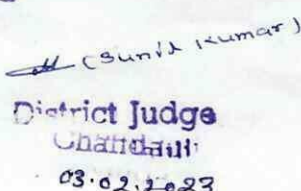 (Sunil Kumar)
District Judge
Chandauli
03.02.2023